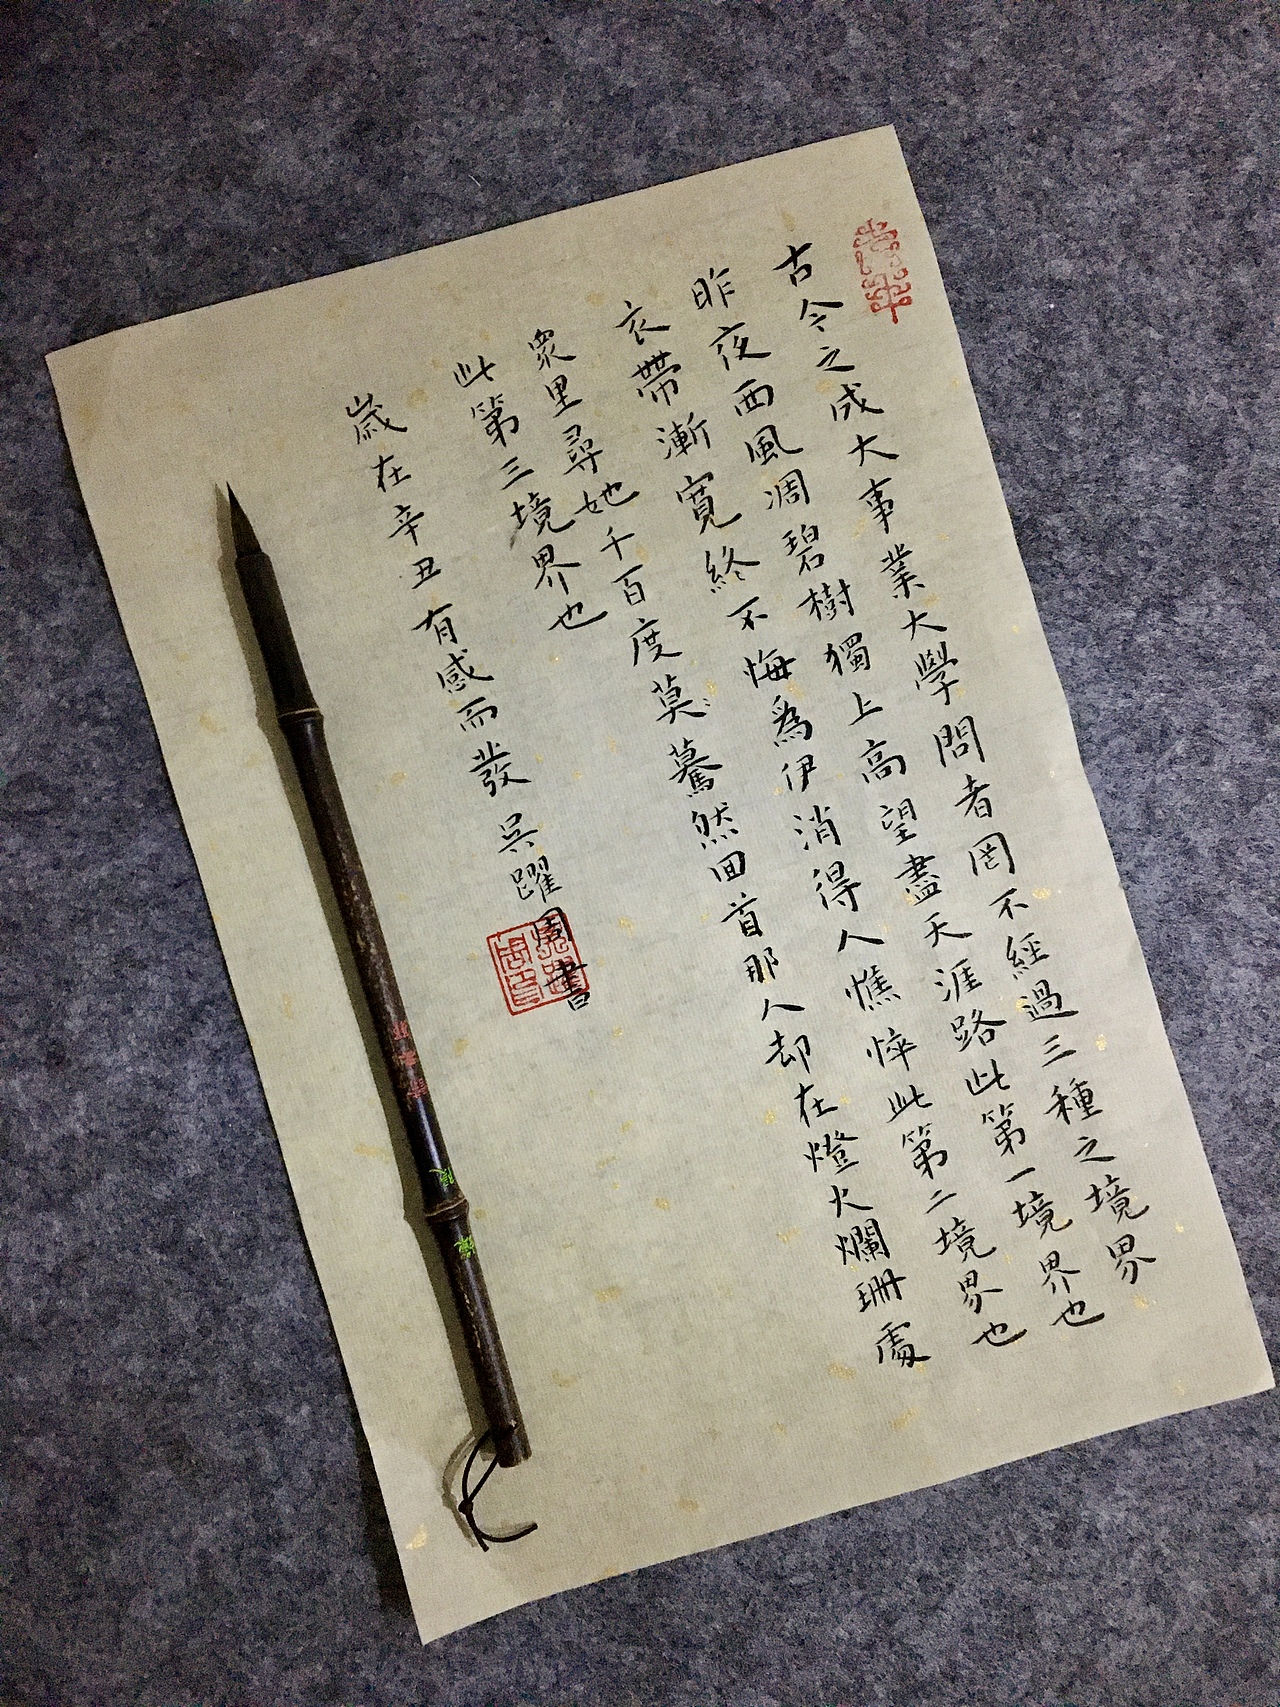 古今之成大事業大學問者罔不經過三種之境界
昨夜西風凋碧樹獨上高望盡天涯路此第一境界也
衣帶漸寬終不悔為伊消得人憔悴此第二境界也
眾里尋她千百度莫驀然回首那人却在燈火爛珊處
此第三境界也
歲在辛丑有感而發吳躍周書